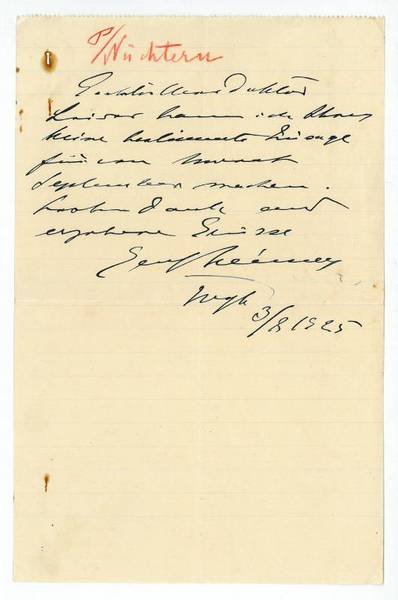 P/Nüchtern
Geehrter Herr Doktor
Leider kann ich Ihnen
keine bestimmte Zusage
für den Monat
September machen.
Dank und
ergebene Grüsse
3/8 1925